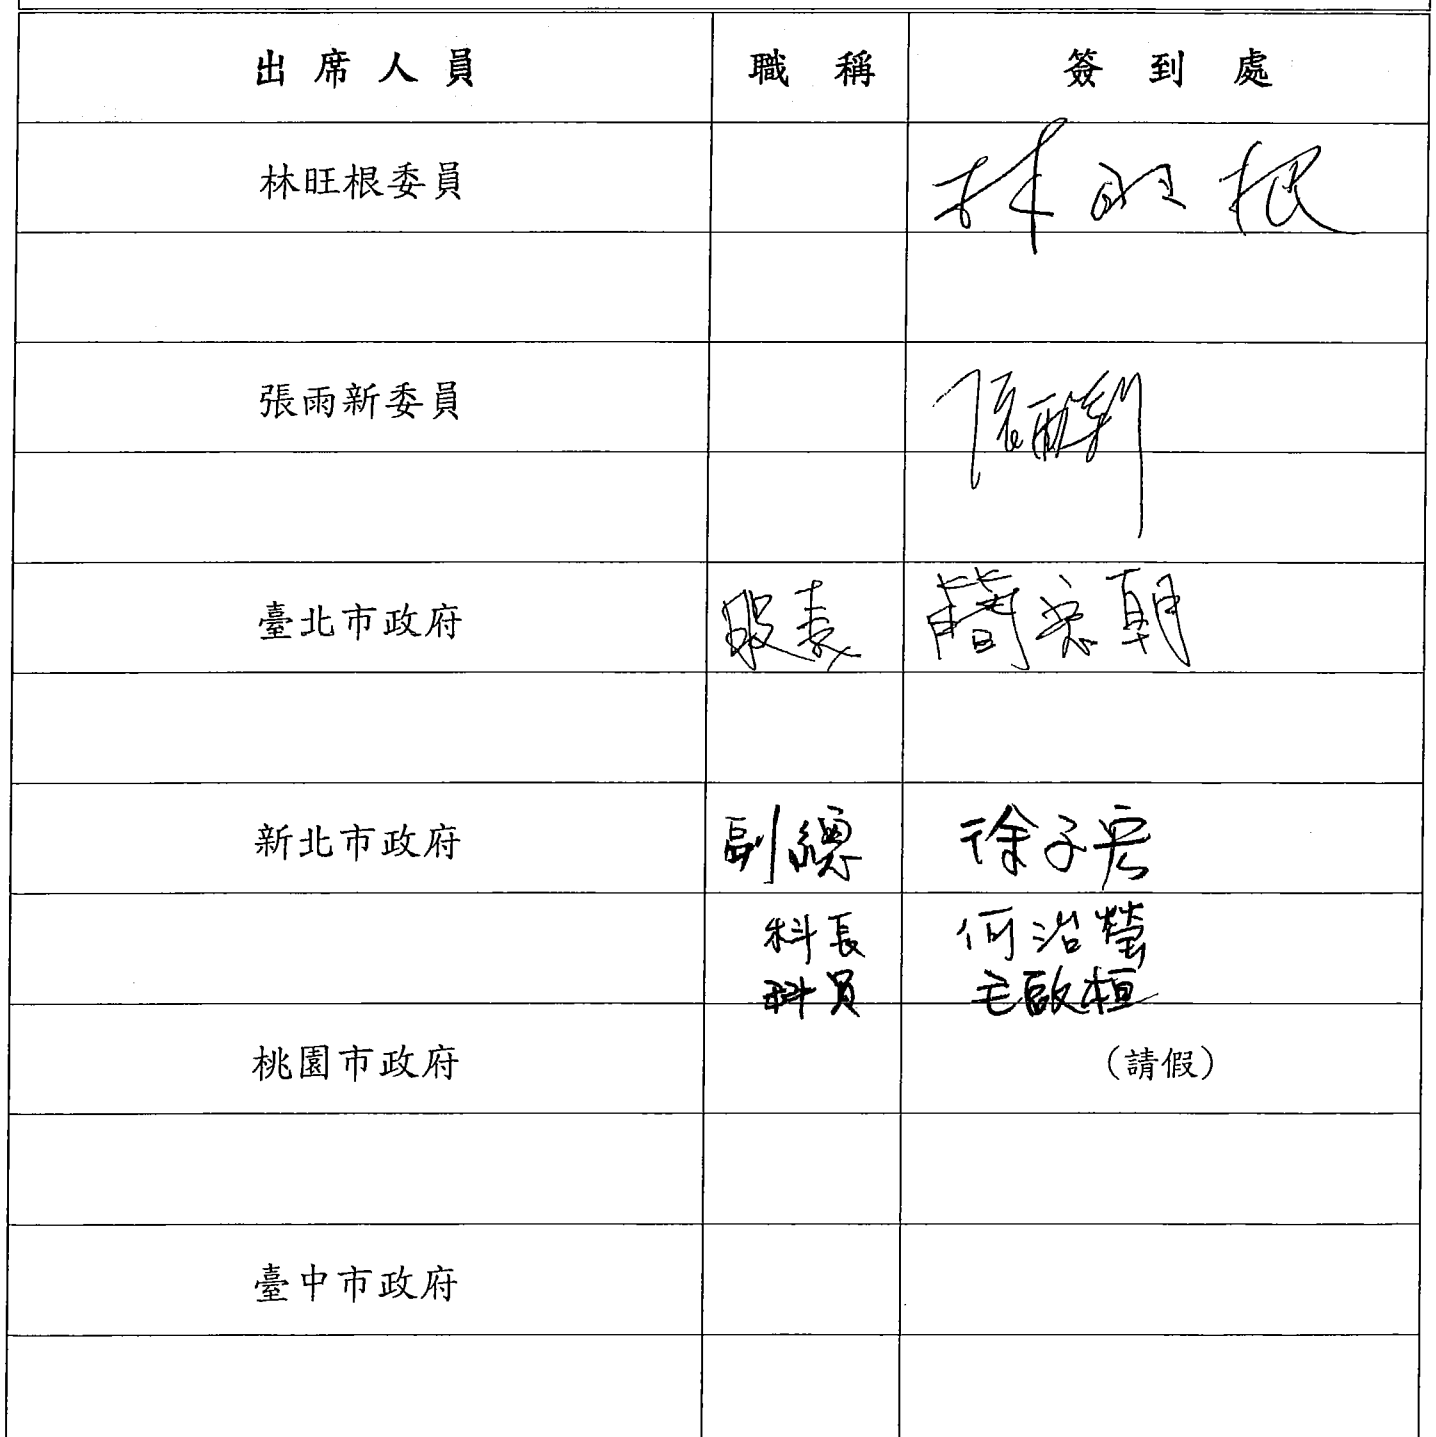 出席人員 職稱 簽到處
林旺根委員 林旺根
張雨新委員 張雨新
臺北市政府 股長
新北市政府 副總 徐子宏
科長
科員 毛啟桓
桃園市政府 (請假)
臺中市政府